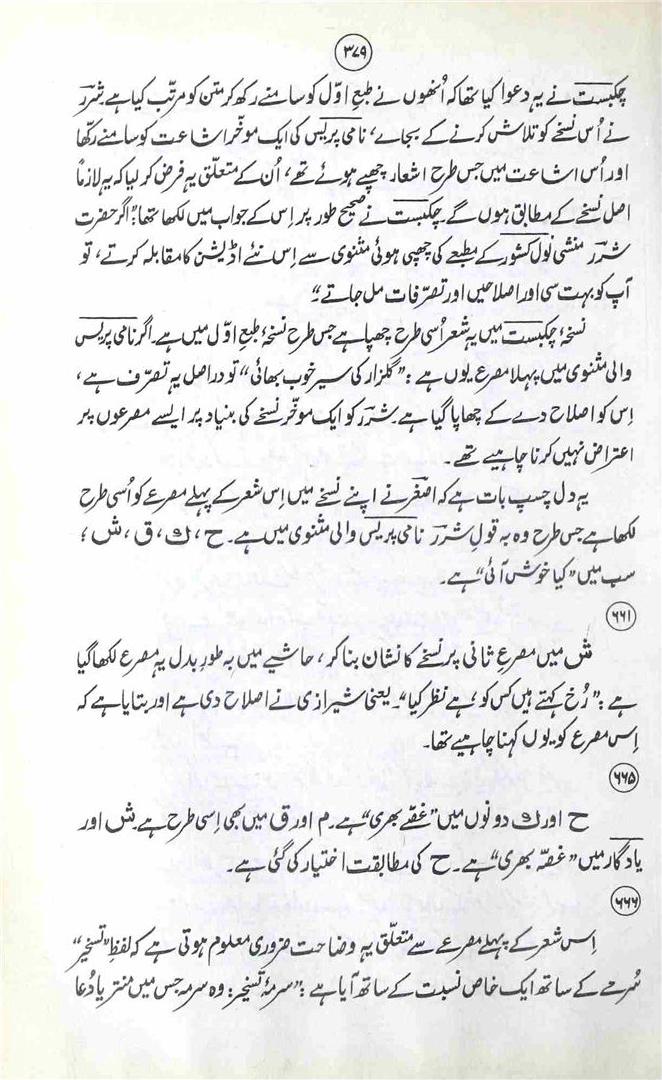 ۳۷۹
چکبست نے یہ دعوا کیا تھا کہ اُنھوں نے طبعِ اوّل کو سامنے رکھ کر متن کو مرتّب کیا ہے۔ شررؔ
نے اُس نسخے کو تلاش کرنے کے بجاے، نامی پریس کی ایک موخّر اشاعت کو سامنے رکھّا
اور اُس اشاعت میں جس طرح اشعار چھپے ہوئے تھے، اُن کے متعلّق یہ فرض کر لیا کہ یہ لازماً
اصل نسخے کے مطابق ہوں گے۔ چکبست نے صحیح طور پر اِس کے جواب میں لکھا تھا: ”اگر حضرت
شررؔ منشی نول کشور کے مطبعے کی چھپی ہوئی مثنوی سے اِس نئے اڈیشن کا مقابلہ کرتے، تو
آپ کو بہت سی اور اصلاحیں اور تصرّفات مل جاتے“۔
نسخۂ چکبست میں یہ شعر اُسی طرح چھپا ہے جس طرح نسخۂ طبعِ اوّل میں ہے۔ اگر نامی پریس
والی مثنوی میں پہلا مصرع یوں ہے: ”گلزار کی سیر خوب بھائی“ تو دراصل یہ تصرّف ہے،
اِس کو اصلاح دے کے چھاپا گیا ہے۔ شررؔ کو ایک موخّر نسخے کی بنیاد پر ایسے مصرعوں پر
اعتراض نہیں کرنا چاہیے تھے۔
یہ دل چسپ بات ہے کہ اصغرؔ نے اپنے نسخے میں اِس شعر کے پہلے مصرعے کو اُسی طرح
لکھا ہے جس طرح وہ بہ قولِ شررؔ نامی پریس والی مثنوی میں ہے۔ ح، ک، ق، ش؛
سب میں ”کیا خوش آئی“ ہے۔
۶۶۱
ش میں مصرعِ ثانی پر نسخے کا نشان بنا کر، حاشیے میں بہ طورِ بدل یہ مصرع لکھا گیا
ہے: ”رُخ کہتے ہیں کس کو، ہے نظر کیا“۔ یعنی شیرازی نے اصلاح دی ہے اور بتایا ہے کہ
اِس مصرع کو یوں کہنا چاہیے تھا۔
۶۶۵
ح اور ک دونوں میں ”غصّے بھری“ ہے۔ م اور ق میں بھی اِسی طرح ہے۔ ش اور
یادگار میں ”غصّہ بھری“ ہے۔ ح کی مطابقت اختیار کی گئی ہے۔
۶۶۶
اِس شعر کے پہلے مصرعے سے متعلّق یہ وضاحت ضروری معلوم ہوتی ہے کہ لفظ ”تسخیر“
سُرمے کے ساتھ ایک خاص نسبت کے ساتھ آیا ہے: ”سرمۂ تسخیر: وہ سرمہ جس میں منتر یا دُعا